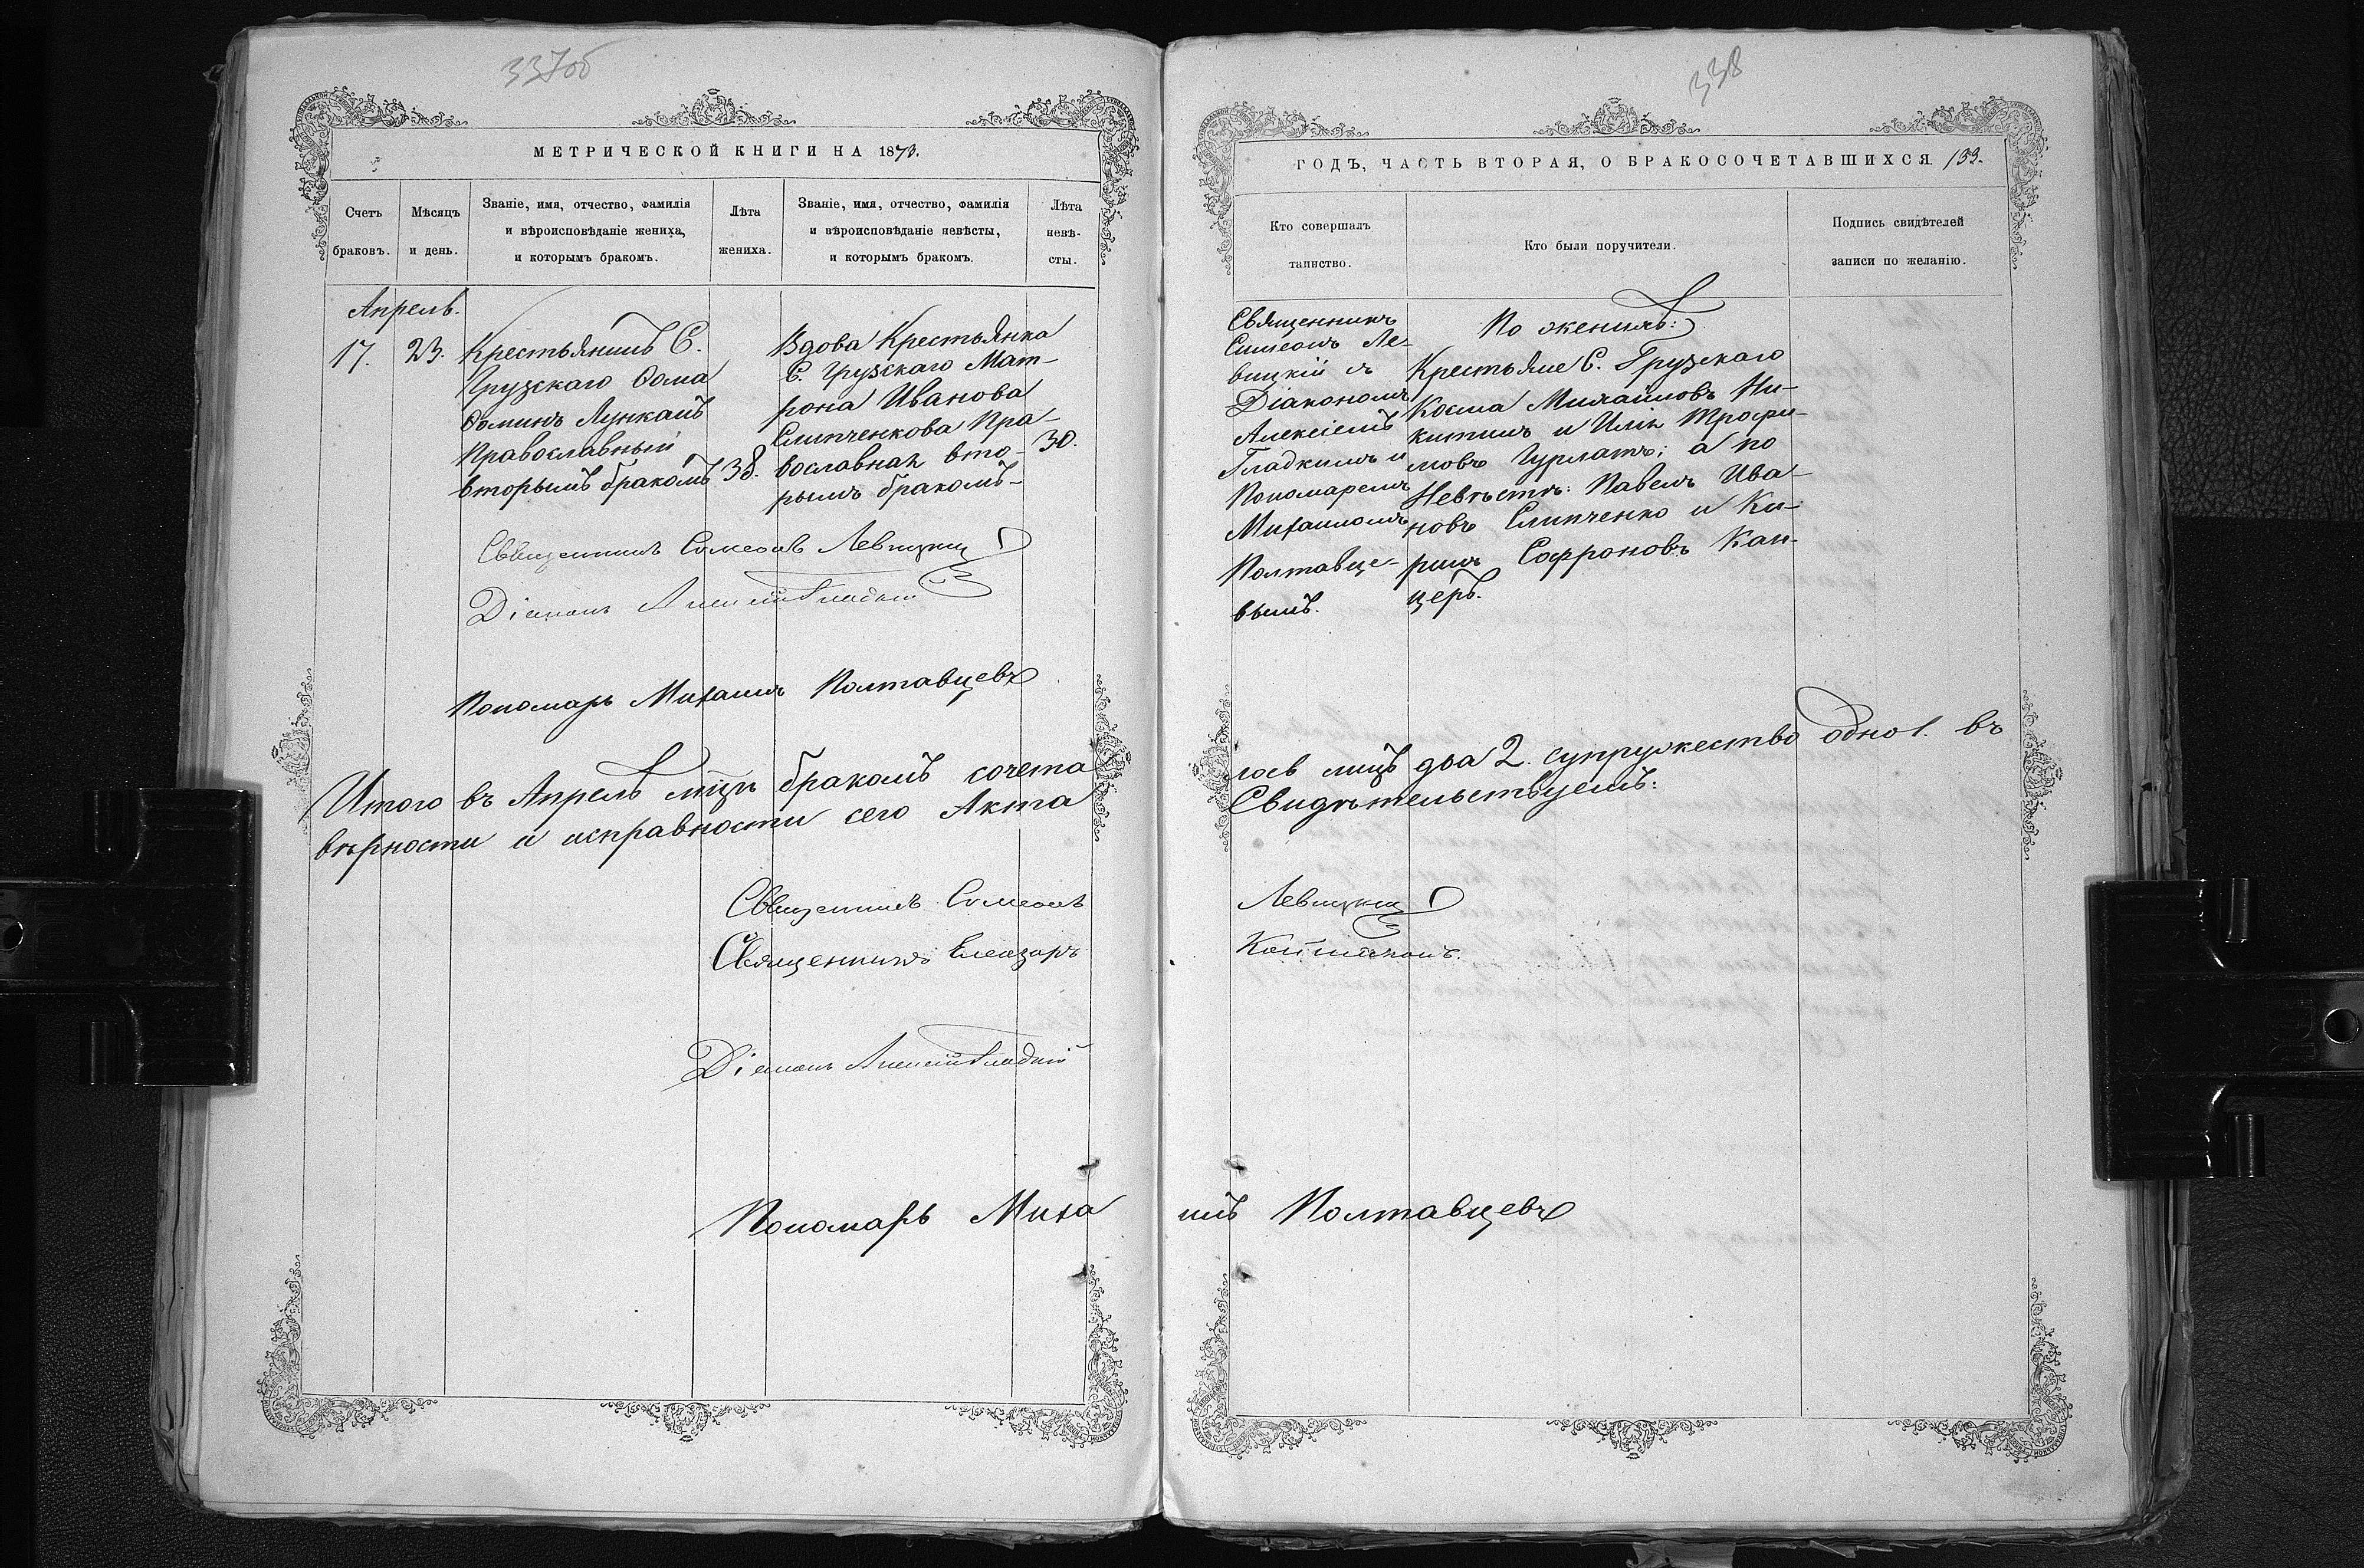 337об
МЕТРИЧЕСКОЙ КНИГИ НА 1873.
Счетъ браковъ.
Мѣсяцъ и день.
Званіе, имя, отчество, фамилія
и вѣроисповѣданіе жениха,
и которымъ бракомъ.
Лѣта жениха.
Званіе, имя, отчество, фамилія
и вѣроисповѣданіе невѣсты,
и которымъ бракомъ.
Лѣта невѣ-
сты.
Апрель.
17.
23.
Крестьянинъ С.
Грузскаго Ѳома
Ѳоминъ Лункашъ
Православный
вторымъ бракомъ
38.
Вдова Крестьянка
С. Грузскаго Мат-
рона Иванова
Слипченкова Пра-
вославная вто-
рымъ бракомъ-
30.
Священникъ Симеонъ Левицкий
Діаконъ Алексій Гладкій
Пономарь Михаилъ Полтавцевъ
Итого въ Апрелѣ мѣцѣ бракомъ сочета
вѣрности и исправности сего Акта
Священникъ Симеонъ
Священникъ Елеазаръ
Діаконъ Алексій Гладкій
Пономарь Миха
338
ГОДЪ, ЧАСТЬ ВТОРАЯ, О БРАКОСОЧЕТАВШИХСЯ 133.
Кто совершалъ
таинство.
Кто были поручители.
Подпись свидѣтелей
записи по желанію.
Священникъ
Симеонъ Ле-
вицкій съ
Діакономъ
Алексіемъ
Гладкимъ и
Пономаремъ
Михаиломъ
Полтавце-
вымъ.
По женихѣ:
Крестьяне С. Грузскаго
Косма Михайловъ Ни-
китинъ и Илія Трофи-
мовъ Гурлатъ; а по
Невѣстѣ: Павелъ Ива-
новъ Слипченко и Ки-
рилъ Софроновъ Кан-
церъ.
лось лицъ два 2. супружество одно 1. въ
Свидѣтельствуемъ:
Левицкий
илъ Полтавцевъ